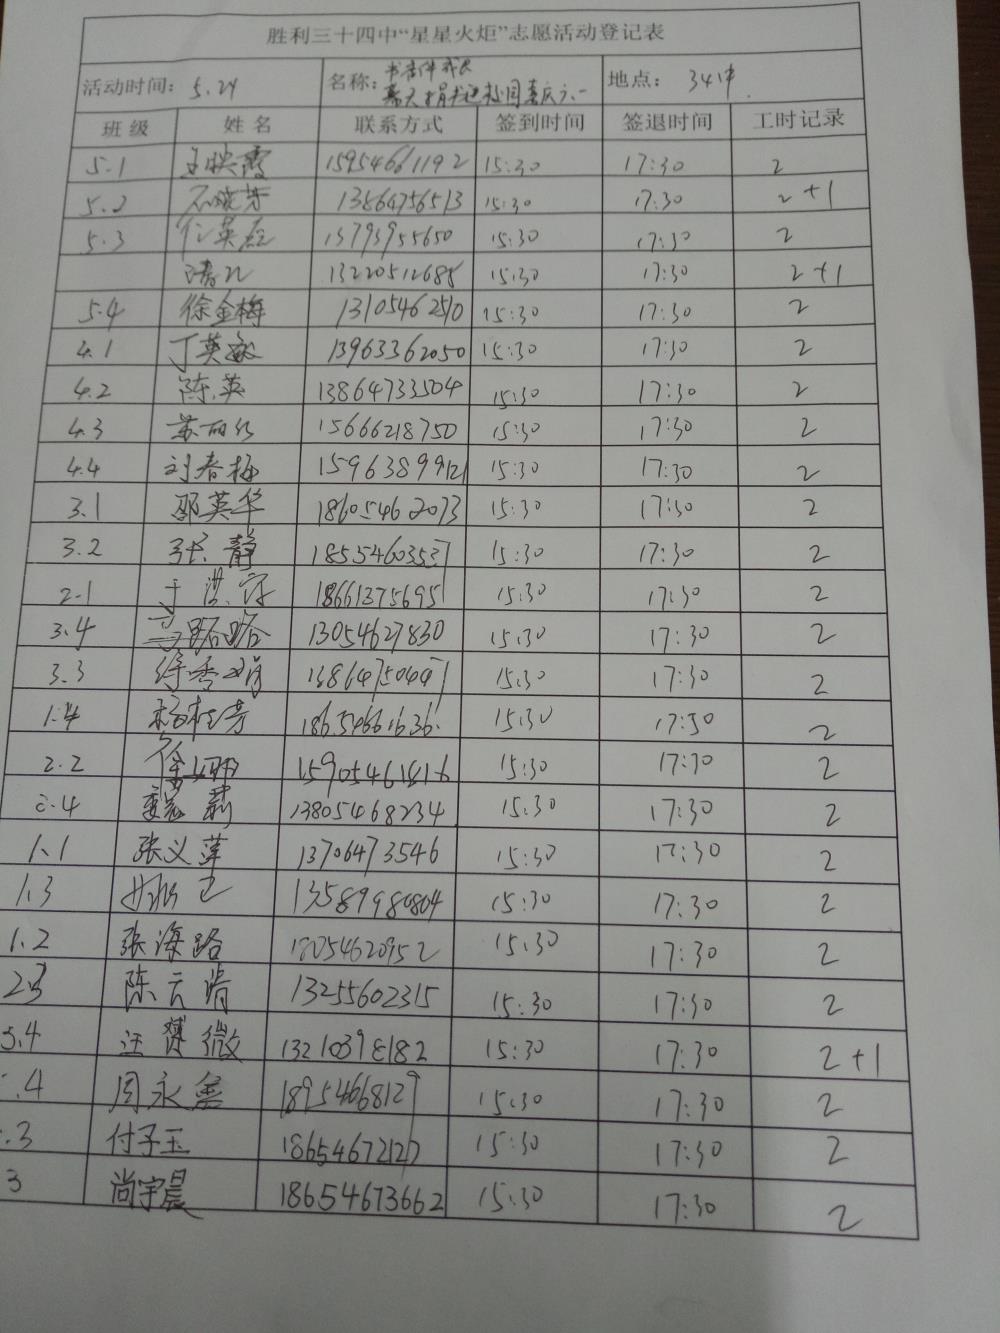 胜利三十四中“星星火炬”志愿活动登记表
活动时间： 5.29 名称： 书香伴成长 地点： 34中
捐书进校园喜庆六一
班级 姓名 联系方式 签到时间 签退时间 工时记录
5.1 王映霞 15954661192 15:30 17:30 2
5.2 石晓芳 13864756513 15:30 17:30 2+1
5.3 任英磊 13793955650 15:30 17:30 2
13220512685 15:30 17:30 2+1
5.4 徐金梅 13105462510 15:30 17:30 2
4.1 丁英敏 13963362050 15:30 17:30 2
4.2 陈英 13864733504 15:30 17:30 2
4.3 苏丽红 15666218750 15:30 17:30 2
4.4 刘春梅 15963899121 15:30 17:30 2
3.1 邵英华 18605462073 15:30 17:30 2
3.2 张静 18554603537 15:30 17:30 2
2.1 于洪 18661375695 15:30 17:30 2
3.4 路路 13054627830 15:30 17:30 2
3.3 徐秀娟 13864750447 15:30 17:30 2
1.4 杨桂芳 18654661636 15:30 17:30 2
2.2 徐丽 15905461816 15:30 17:30 2
2.4 魏莉 13805468234 15:30 17:30 2
1.1 张义萍 13706473546 15:30 17:30 2
1.3 13589980804 15:30 17:30 2
1.2 张海路 18054620952 15:30 17:30 2
2.3 陈云清 13255602315 15:30 17:30 2
5.4 汪赟微 13210398182 15:30 17:30 2+1
.4 周永鑫 18954668127 15:30 17:30 2
.3 付子玉 18654672127 15:30 17:30 2
3 尚宇晨 18654673662 15:30 17:30 2